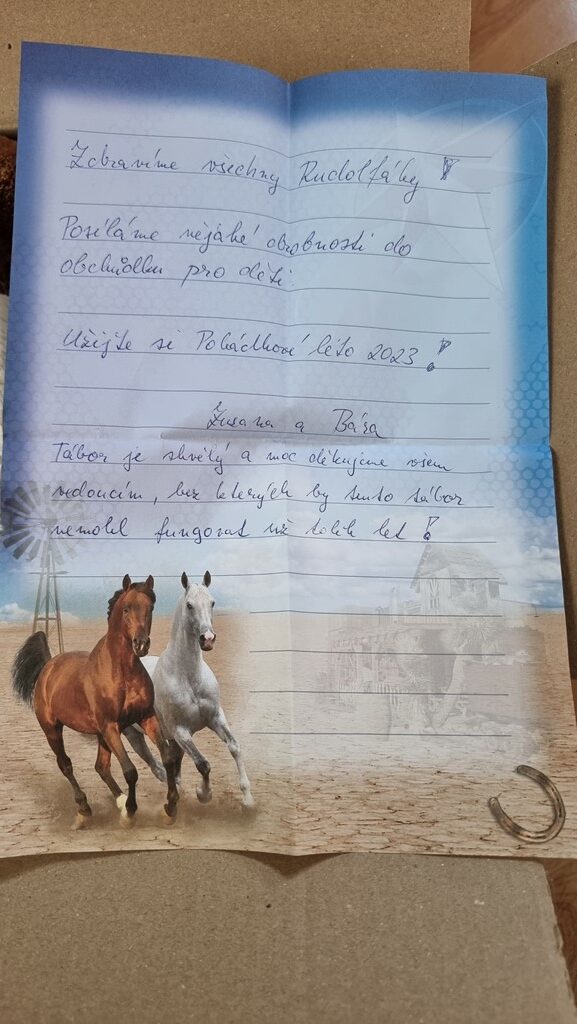 Zdravíme všechny Rudolfáky!
Posíláme nějaké drobnosti do
obchůdku pro děti.
Užijte si Pohádkové léto 2023!
Zuzana a Bára
Tábor je skvělý a moc děkujeme všem
vedoucím, bez kterých by tento tábor
nemohl fungovat už tolik let!